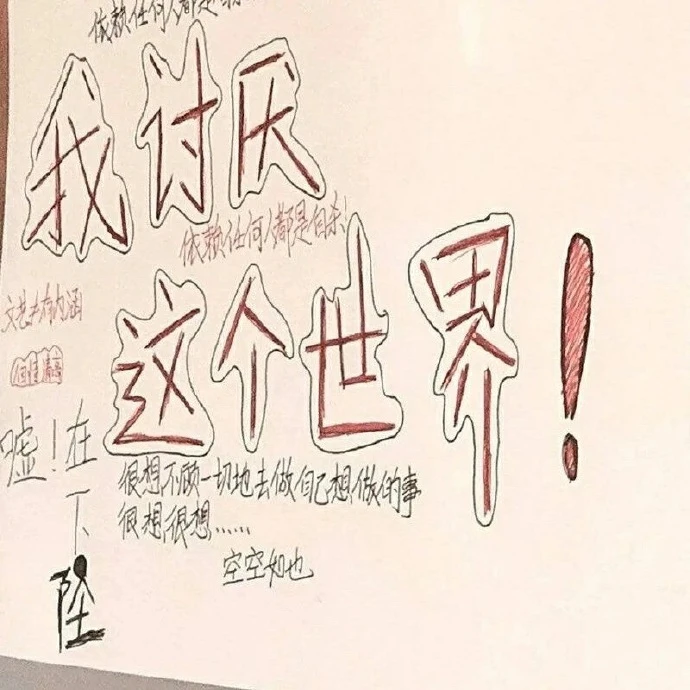 依赖任何人都是
我讨厌
依赖任何人都是自杀
这个世界!
嘘!在下坠
很想不顾一切地去做自己想做的事
很想很想......
空空如也